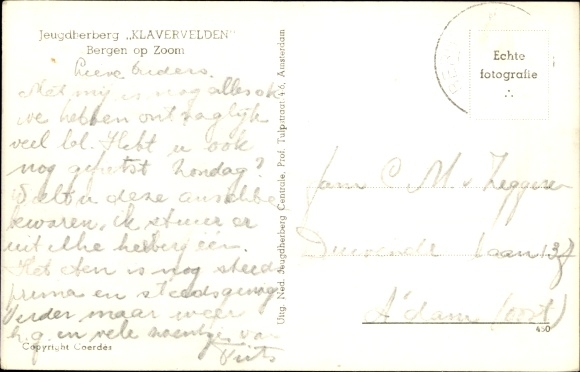 Jeugdherberg „KLAVERVELDEN"
Bergen op Zoom
Lieve ouders.
Met mij is nog alles ok
we hebben ontzaglijk
veel lol. Hebt u ook
nog gefietst Zondag?
Wilt u deze
bewaren, ik stuur er
uit elke herberg één.
Het eten is nog steeds
prima en steeds genoeg
Verder maar weer
h.g. en vele zoentjes van
Copyright Coerdes
Uitg. Ned. Jeugdherberg Centrale, Prof. Tulpstraat 4-6, Amsterdam
Echte
fotografie
Fam C M v
laan 137
A'dam (oost)
450